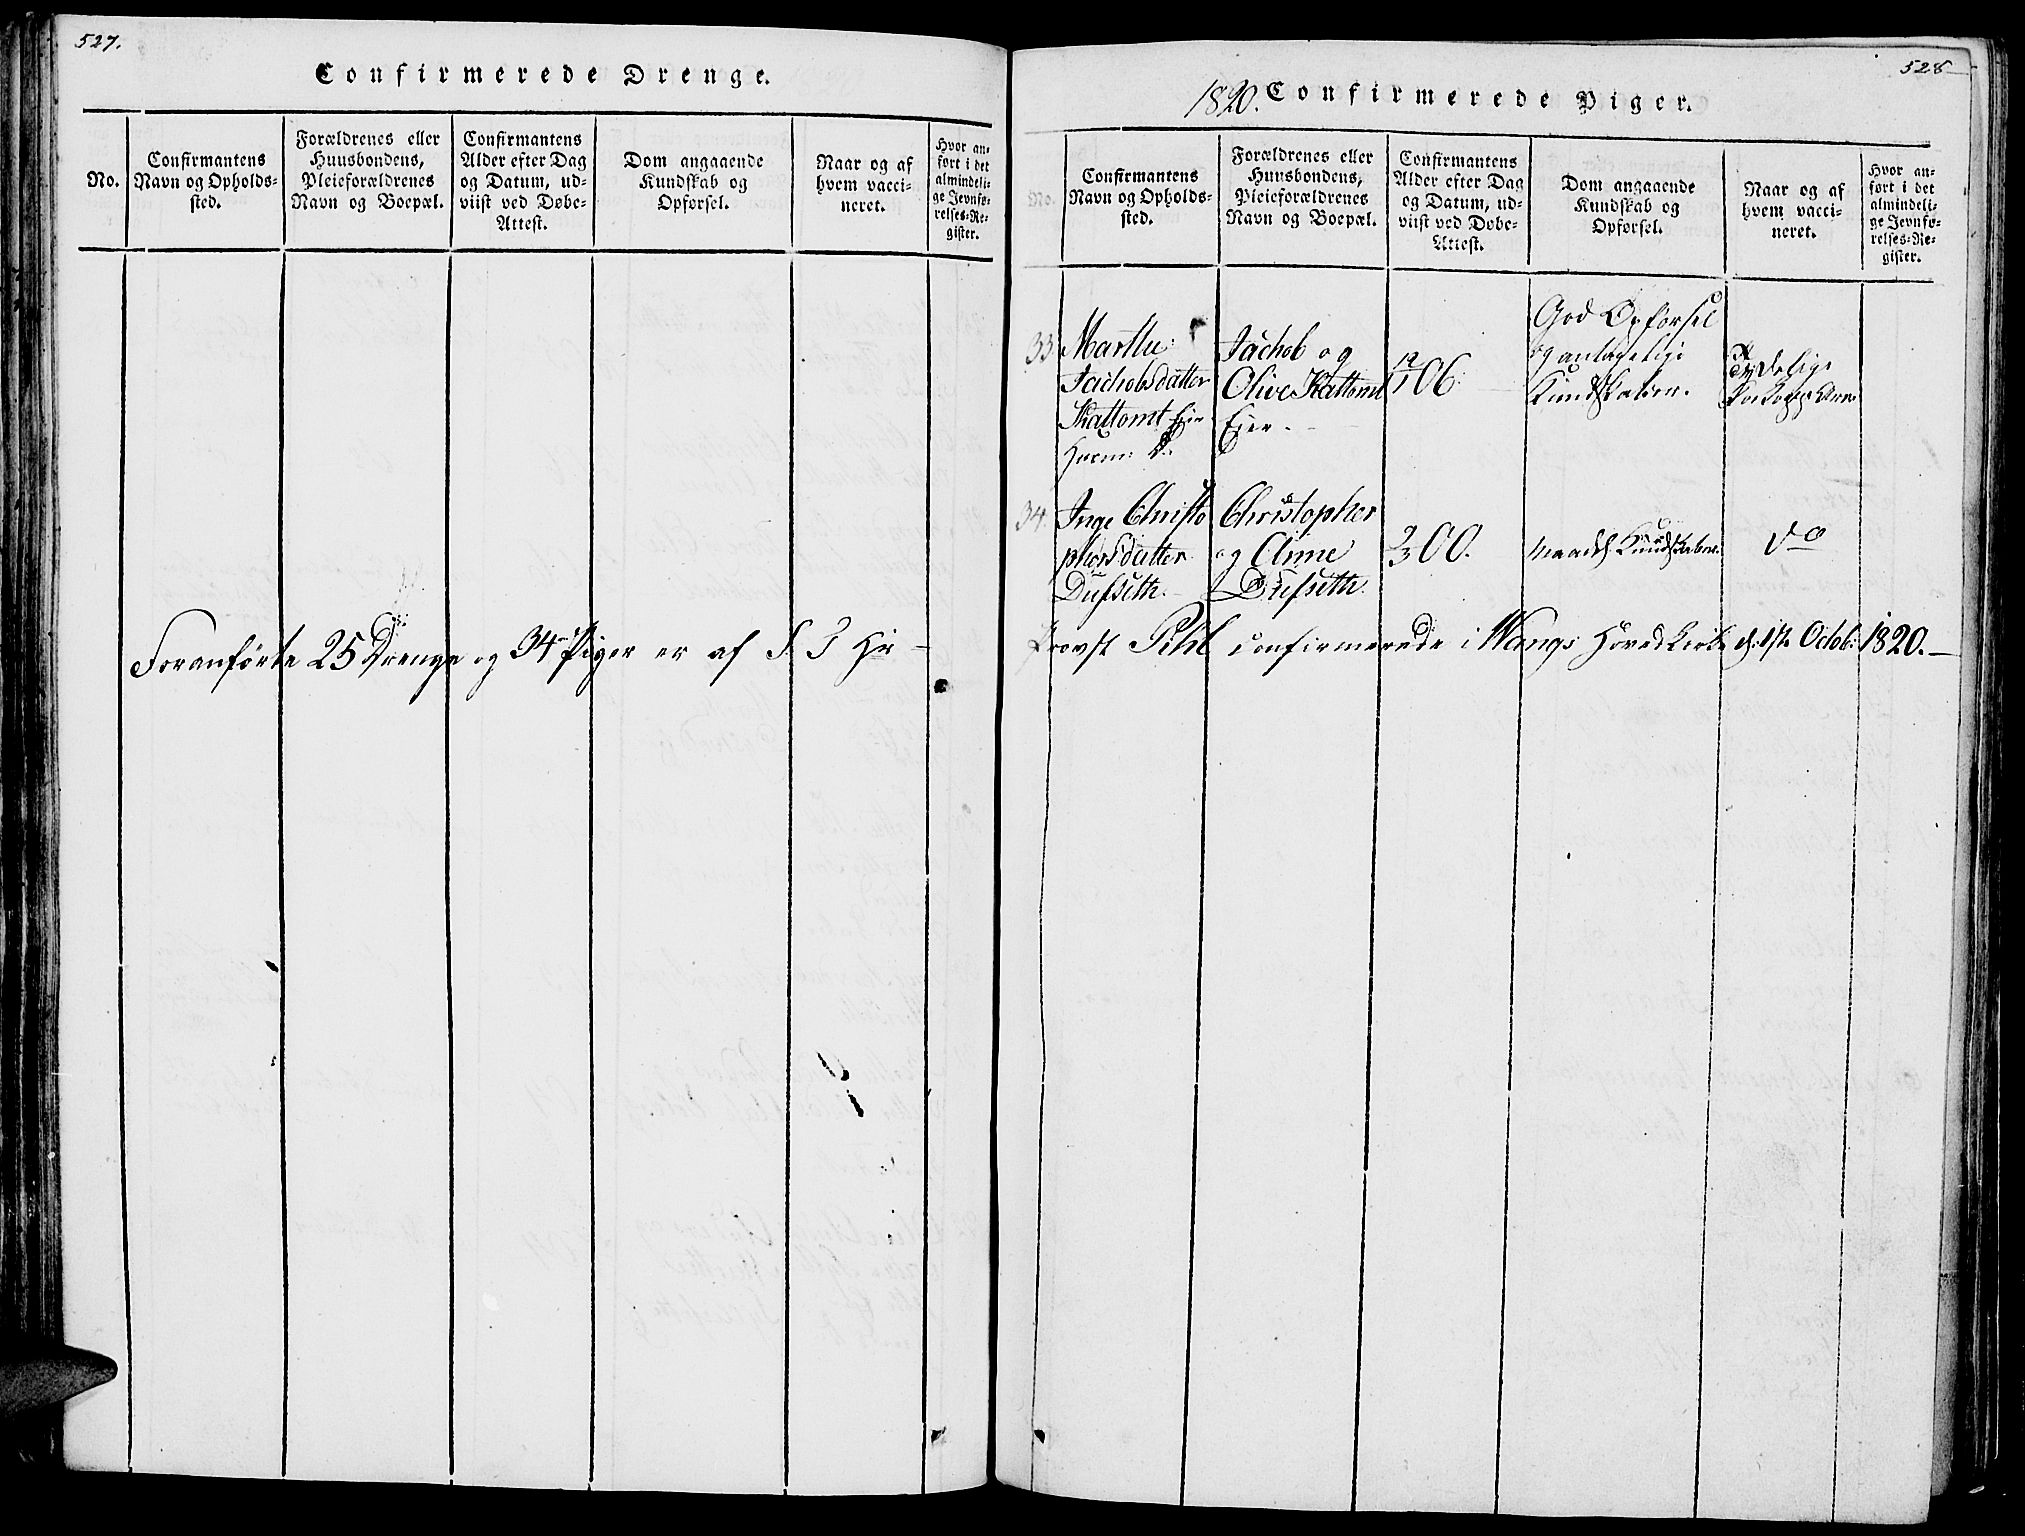 527.
Confirmerede Drenge.
No.
Confirmantens
Navn og Opholds-
sted.
Forældrenes eller
Huusbondens,
Pleieforældrenes
Navn og Boepæl.
Confirmantens
Alder efter Dag
og Datum, ud-
viist ved Døbe-
Attest.
Dom angaaende
Kundskab og
Opførsel.
Naar og af
hvem vacci-
neret.
Hvor an-
ført i det
almindeli-
ge Jevnfø-
relses-Re-
gister.
Foranförte 25 Drenge og 34 Piger er af S. T Hr
528
1820. Confirmerede Piger.
No.
Confirmantens
Navn og Opholds-
sted.
Forældrenes eller
Huusbondens,
Pleieforældrenes
Navn og Boepæl.
Confirmantens
Alder efter Dag
og Datum, ud-
viist ved Døbe-
Attest.
Dom angaaende
Kundskab og
Opførsel.
Naar og af
hvem vacci-
neret.
Hvor an-
ført i det
almindeli-
ge Jevnfø-
relses-Re-
gister.
33
Marthe
Jachobsdatter
Skattomt Eier
Jachob og
Olive Skattomt
Eier
12/1 06.
God Opførsel
og antagelige
Kundskaber.
Tydelige
34.
Inge Christo
phersdatter
Dufseth.
Christopher
og Anne
Dufseth.
2/3 00.
maadl Kundskaber.
do
Provst Pihl confirmerede i Wangs Hovedkirke d: 1ste Octob: 1820.